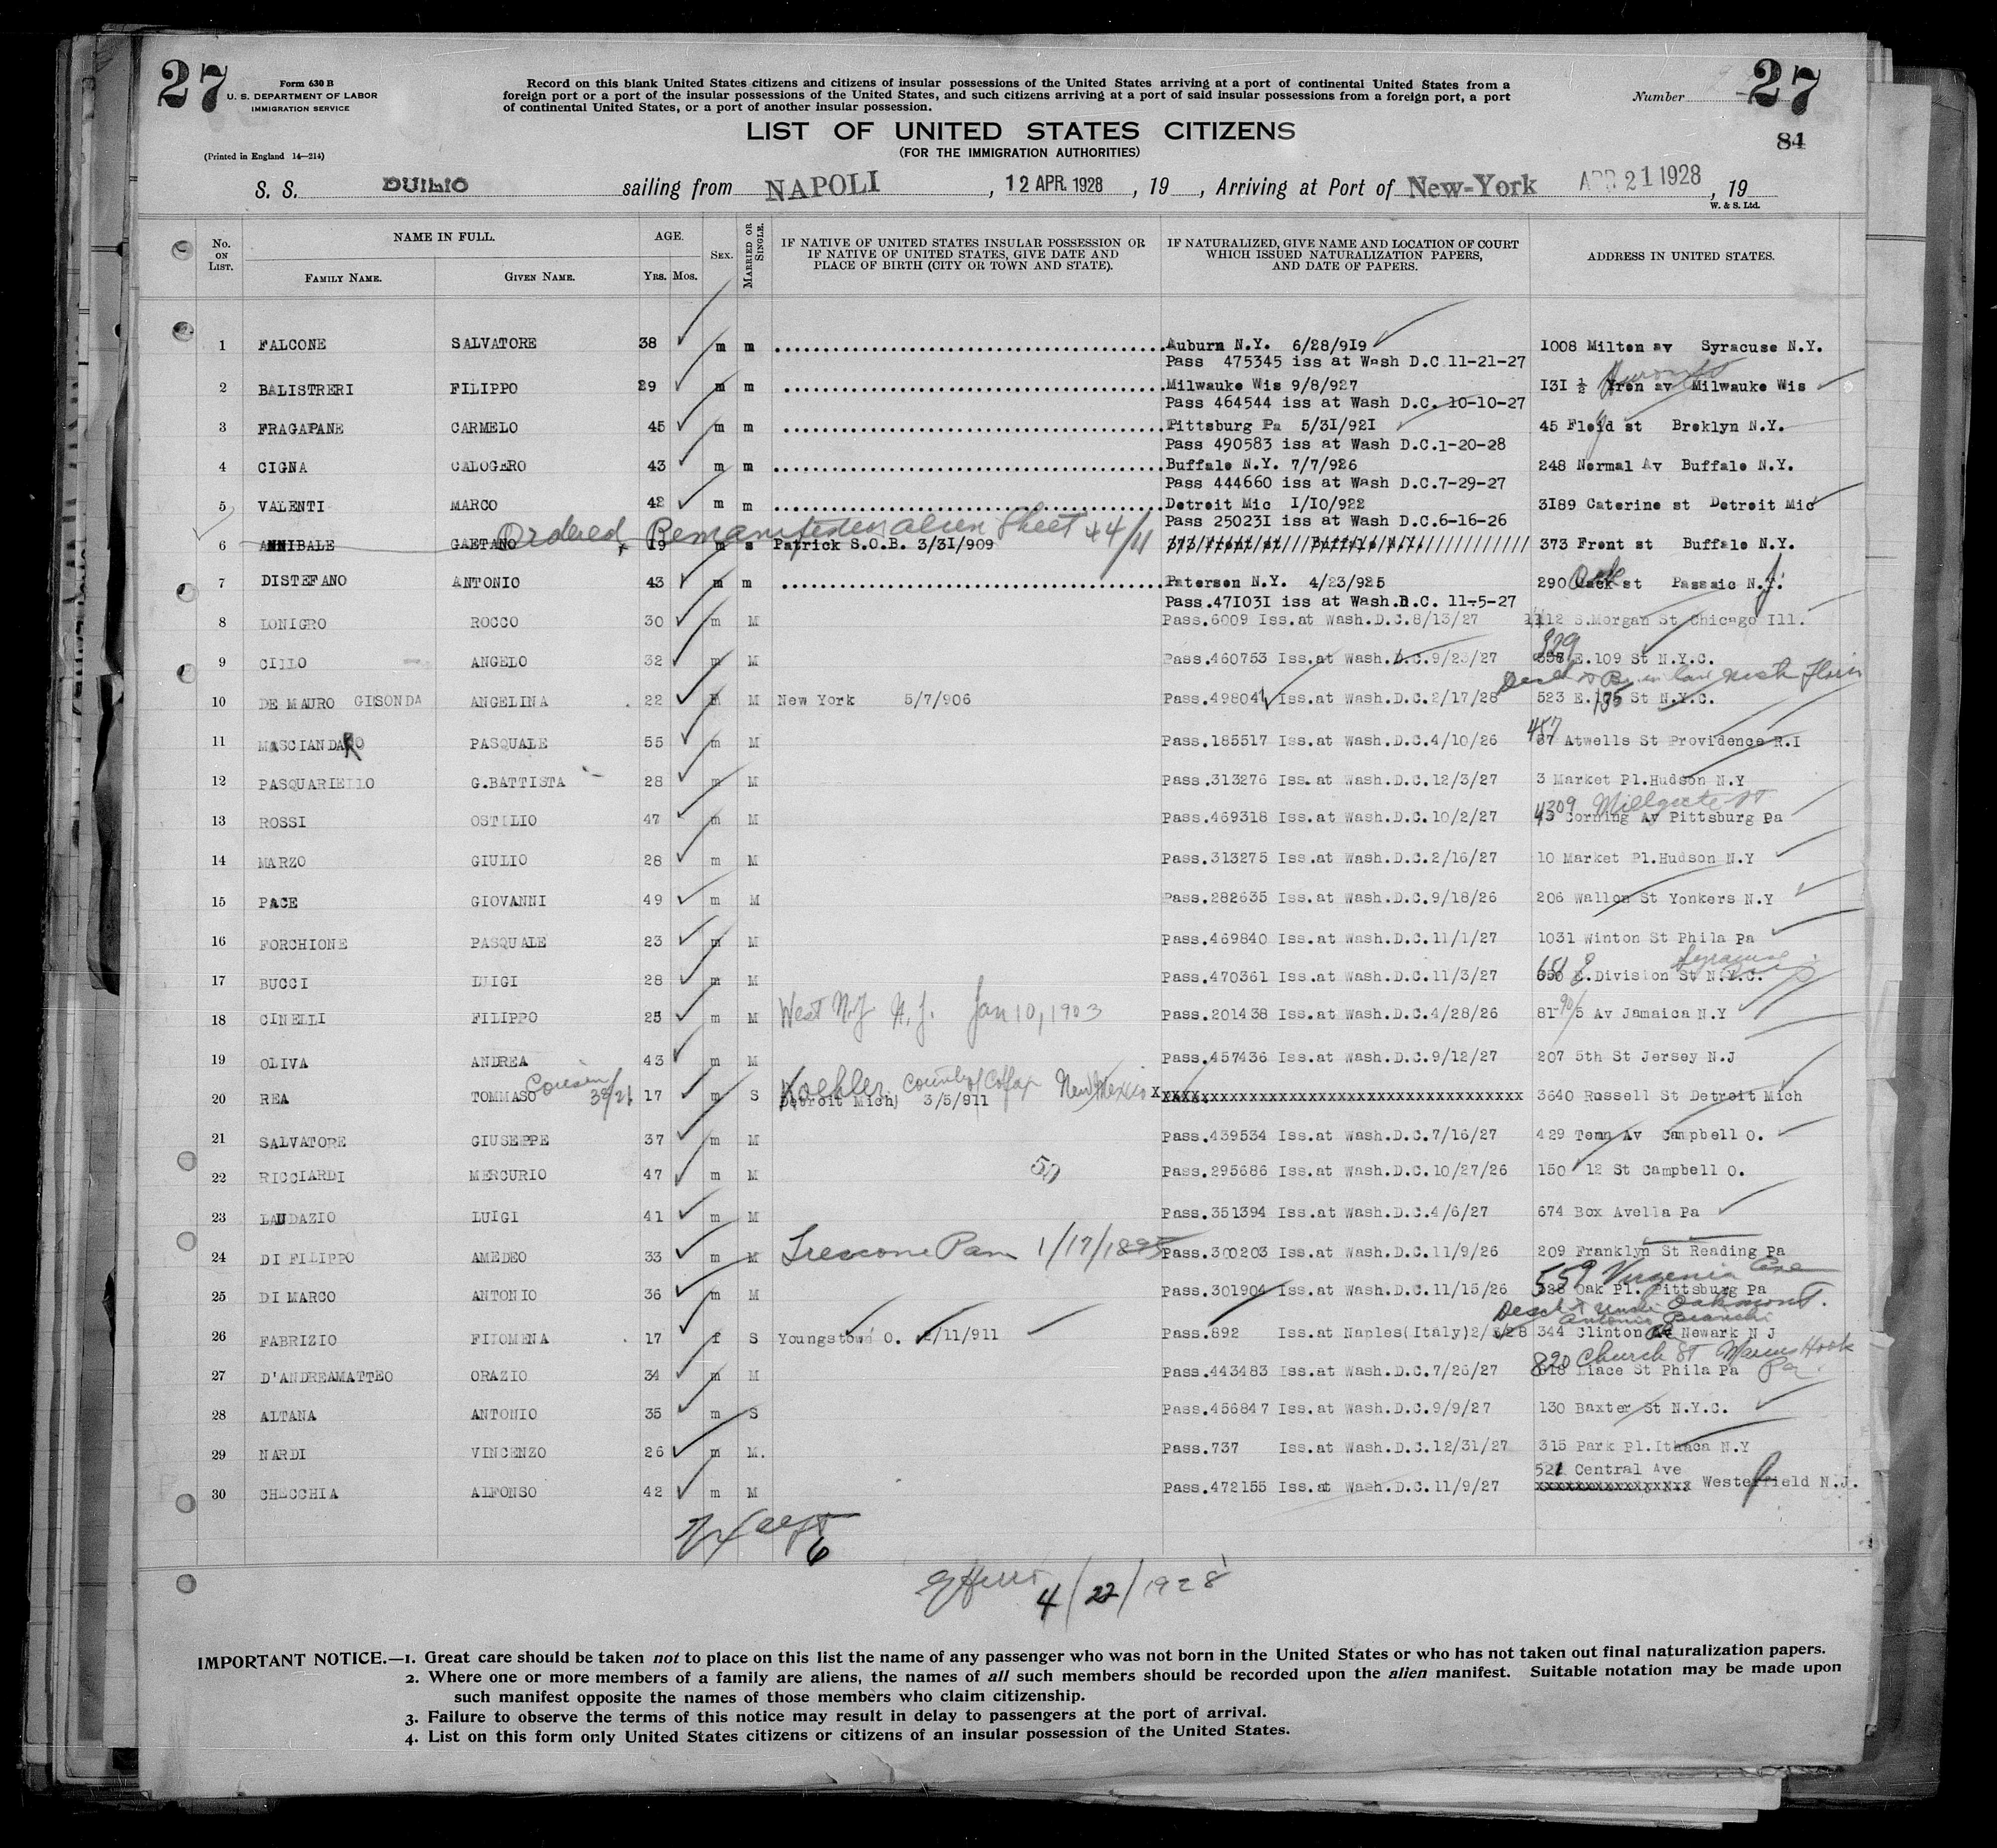 27
Form 630 B
U. S. DEPARTMENT OF LABOR
IMMIGRATION SERVICE
(Printed in England 14—214)
Record on this blank United States citizens and citizens of insular possessions of the United States arriving at a port of continental United States from a
foreign port or a port of the insular possessions of the United States, and such citizens arriving at a port of said insular possessions from a foreign port, a port
of continental United States, or a port of another insular possession.
Number 27
84
LIST OF UNITED STATES CITIZENS
(FOR THE IMMIGRATION AUTHORITIES)
S. S. DUILIO sailing from NAPOLI, 12 APR. 1928, 19 , Arriving at Port of New-York APR 21 1928, 19
W. & S. Ltd.
No. ON LIST. NAME IN FULL. FAMILY NAME. GIVEN NAME. AGE. YRS. MOS. SEX. MARRIED OR SINGLE. IF NATIVE OF UNITED STATES INSULAR POSSESSION OR IF NATIVE OF UNITED STATES, GIVE DATE AND PLACE OF BIRTH (CITY OR TOWN AND STATE). IF NATURALIZED, GIVE NAME AND LOCATION OF COURT WHICH ISSUED NATURALIZATION PAPERS, AND DATE OF PAPERS. ADDRESS IN UNITED STATES.
1 FALCONE SALVATORE 38 m m Auburn N.Y. 6/28/919 1008 Milton av Syracuse N.Y.
Pass 475345 iss at Wash D.C.11-21-27
2 BALISTRERI FILIPPO 29 m m Milwauke Wis 9/8/927 131 ½ Yron av Milwauke Wis
Pass 464544 iss at Wash D.C. 10-10-27
3 FRAGAPANE CARMELO 45 m m Pittsburg Pa 5/31/921 45 Floyd st Broklyn N.Y.
Pass 490583 iss at Wash D.C.1-20-28
4 CIGNA CALOGERO 43 m m Buffalo N.Y. 7/7/926 248 Normal Av Buffalo N.Y.
Pass 444660 iss at Wash D.C.7-29-27
5 VALENTI MARCO 42 m m Detroit Mic 1/10/922 3189 Caterine st Detroit Mic
Pass 250231 iss at Wash D.C.6-16-26
Ordered Remanifested on alien Sheet 44/11
6 ANNIBALE GAETANO 19 m s Patrick S.O.B. 3/31/909 373 Front st Buffalo N.Y. 373 Front st Buffalo N.Y.
7 DISTEFANO ANTONIO 43 m m Paterson N.Y. 4/23/925 290 Oak st Passaic N.J.
Pass.471031 iss at Wash.D.C. 11-5-27
8 LONIGRO ROCCO 30 m M Pass.6009 Iss.at Wash.D.C.8/13/27 1112 S.Morgan St Chicago Ill.
329
9 CILLO ANGELO 32 m M Pass.460753 Iss.at Wash.D.C.9/23/27 E.109 St N.Y.C.
10 DE MAURO GISONDA ANGELINA 22 M New York 5/7/906 Pass.498041 Iss.at Wash.D.C.2/17/28 523 E.185 St N.Y.C.
457
11 MASCIANDARO PASQUALE 55 m M Pass.185517 Iss.at Wash.D.C.4/10/26 Atwells St Providence R.I
12 PASQUARIELLO G.BATTISTA 28 m M Pass.313276 Iss.at Wash.D.C.12/3/27 3 Market Pl.Hudson N.Y
4309 Millgate St
13 ROSSI OSTILIO 47 m M Pass.469318 Iss.at Wash.D.C.10/2/27 Corning Av Pittsburg Pa
14 MARZO GIULIO 28 m M Pass.313275 Iss.at Wash.D.C.2/16/27 10 Market Pl.Hudson N.Y
15 PACE GIOVANNI 49 m M Pass.282635 Iss.at Wash.D.C.9/18/26 206 Wallon St Yonkers N.Y
16 FORCHIONE PASQUALE 23 m M Pass.469840 Iss.at Wash.D.C.11/1/27 1031 Winton St Phila Pa
Syracuse
17 BUCCI LUIGI 28 m M Pass.470361 Iss.at Wash.D.C.11/3/27 E.Division St N.Y.C.
18 CINELLI FILIPPO 25 m M West N.Y N.J. Jan 10, 1903 Pass.201438 Iss.at Wash.D.C.4/28/26 81-90/5 Av Jamaica N.Y
19 OLIVA ANDREA 43 m M Pass.457436 Iss.at Wash.D.C.9/12/27 207 5th St Jersey N.J
Cousin Koehler County of Colfax New Mexico
20 REA TOMMASO 17 m S Detroit Mich 3/5/911 xxxxxxxxxxxxxxxxxxxxxxxxxxxxxxxxxxxx 3640 Russell St Detroit Mich
21 SALVATORE GIUSEPPE 37 m M Pass.439534 Iss.at Wash.D.C.7/16/27 429 Tenn Av Campbell O.
22 RICCIARDI MERCURIO 47 m M Pass.295686 Iss.at Wash.D.C.10/27/26 150 12 St Campbell O.
23 LAUDAZIO LUIGI 41 m M Pass.351394 Iss.at Wash.D.C.4/6/27 674 Box Avella Pa
24 DI FILIPPO AMEDEO 33 m M 1/17/1895 Pass.300203 Iss.at Wash.D.C.11/9/26 209 Franklyn St Reading Pa
559 Virginia Ave
25 DI MARCO ANTONIO 36 m M Pass.301904 Iss.at Wash.D.C.11/15/26 328 Oak Pl. Pittsburg Pa
Oakmont.
26 FABRIZIO FILOMENA 17 f S Youngstown O. 2/11/911 Pass.892 Iss.at Naples(Italy)2/3/28 344 Clinton Newark N J
820 Church St Marcus Hook Pa
27 D'ANDREAMATTEO ORAZIO 34 m M Pass.443483 Iss.at Wash.D.C.7/26/27 618 Liace St Phila Pa
28 ALTANA ANTONIO 35 m S Pass.456847 Iss.at Wash.D.C.9/9/27 130 Baxter St N.Y.C.
29 NARDI VINCENZO 26 m M. Pass.737 Iss.at Wash.D.C.12/31/27 315 Park Pl.Ithaca N.Y
521 Central Ave
30 CHECCHIA ALFONSO 42 m M Pass.472155 Iss.at Wash.D.C.11/9/27 xxxxxxxxxxxxxxxxx Westerfield N.J.
4/22/1928
IMPORTANT NOTICE.—1. Great care should be taken not to place on this list the name of any passenger who was not born in the United States or who has not taken out final naturalization papers.
2. Where one or more members of a family are aliens, the names of all such members should be recorded upon the alien manifest. Suitable notation may be made upon
such manifest opposite the names of those members who claim citizenship.
3. Failure to observe the terms of this notice may result in delay to passengers at the port of arrival.
4. List on this form only United States citizens or citizens of an insular possession of the United States.